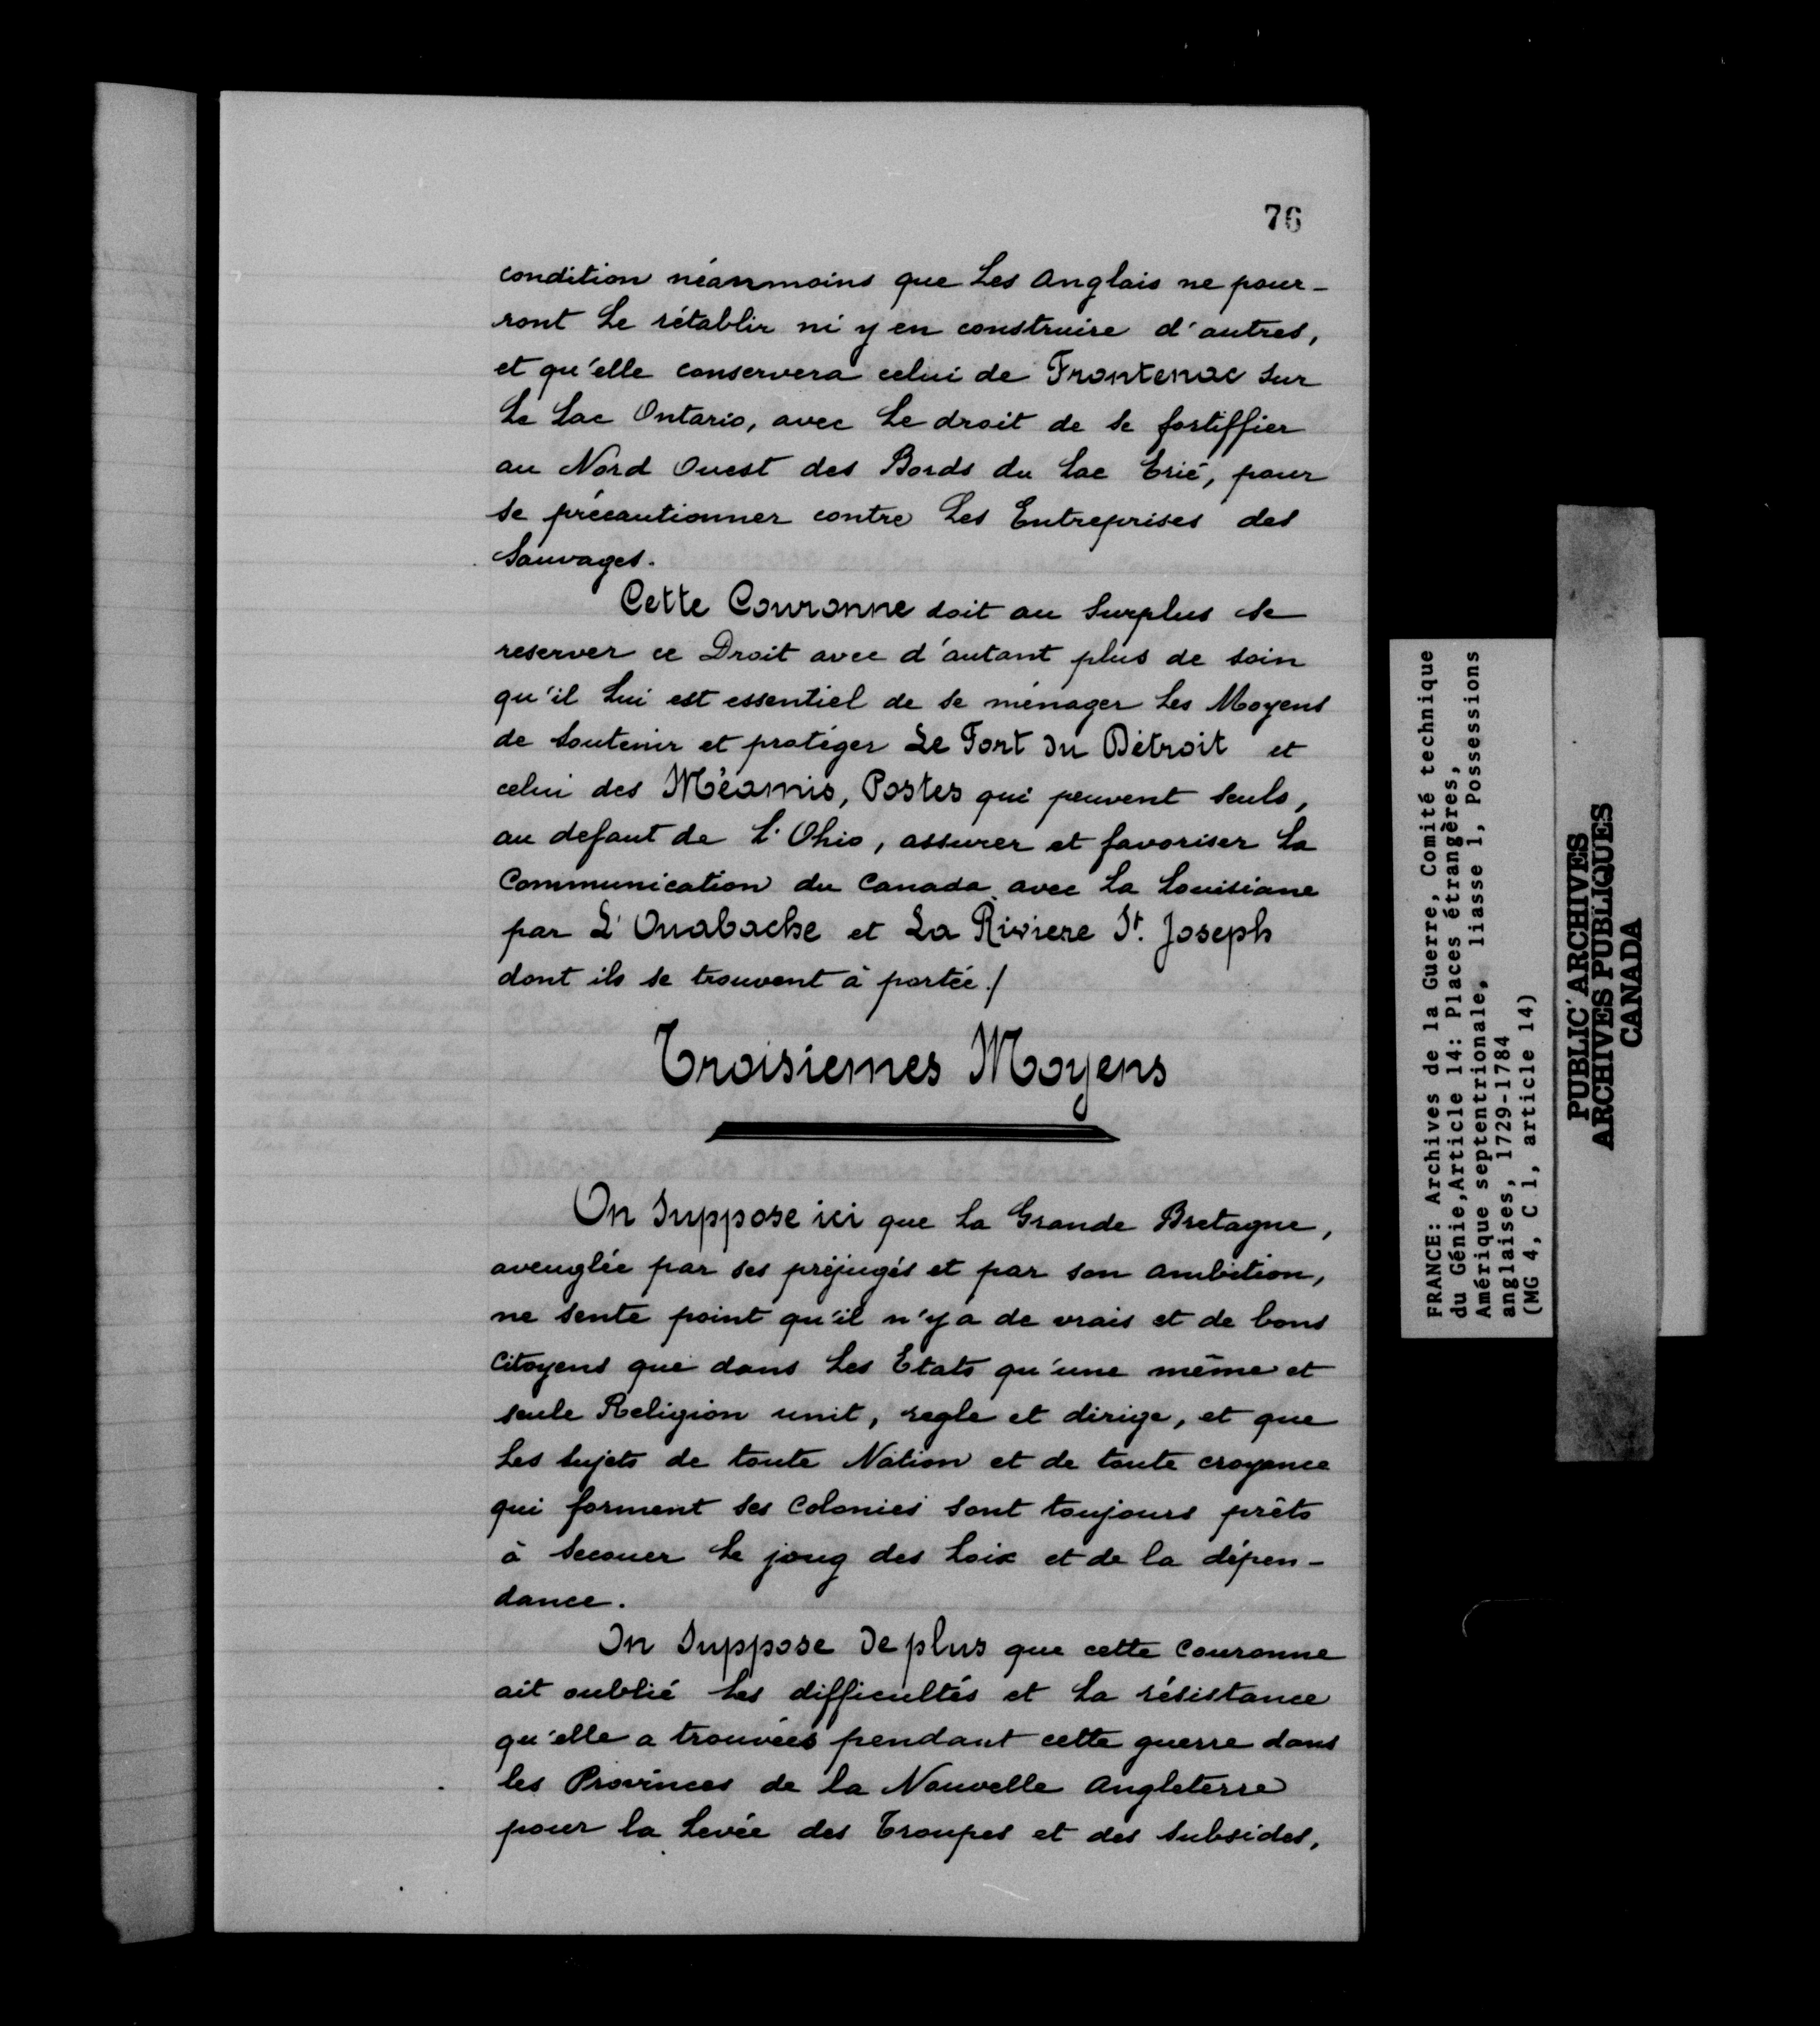 76
condition néanmoins que Les Anglais ne pour-
ront Le rétablir ni y en construire d'autres,
et qu'elle conservera celui de Frontenac sur
Le Lac Ontario, avec Le droit de se fortiffier
au Nord Ouest des Bords du Lac Erié, pour
se précautionner contre Les Entreprises des
Sauvages.
Cette Couronne doit au Surplus se
reserver ce Droit avec d'autant plus de soin
qu'il Lui est essentiel de se ménager Les Moyens
de Soutenir et protéger Le Fort du Détroit et
celui des Méamis, Postes qui peuvent seuls,
au defaut de L'Ohio, assurer et favoriser La
Communication du Canada avec La Louisiane
par L'Ouabache et La Riviere St. Joseph
dont ils se trouvent à portée./
Troisiemes Moyens
On Suppose ici que La Grande Bretagne,
aveuglée par ses préjugés et par son ambition,
ne sente point qu'il n'y a de vrais et de bons
Citoyens que dans Les Etats qu'une même et
seule Religion unit, regle et dirige, et que
Les Sujets de toute Nation et de toute croyance
qui forment ses Colonies sont toujours prêts
à Secouer Le joug des Loix et de la dépen-
dance.
On Suppose de plus que cette Couronne
ait oublié Les difficultés et La résistance
qu'elle a trouvées pendant cette guerre dans
les Provinces de la Nouvelle Angleterre
pour la Levée des Troupes et des Subsides,
FRANCE: Archives de la Guerre, Comité technique
du Génie, Article 14: Places étrangères,
Amérique septentrionale, liasse 1, Possessions
anglaises, 1729-1784
(MG 4, C 1, article 14)
PUBLIC ARCHIVES
ARCHIVES PUBLIQUES
CANADA